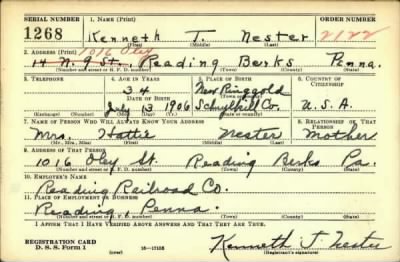 SERIAL NUMBER 1. NAME (Print) ORDER NUMBER
1268 Kenneth T. Nester 2122
(First) (Middle) (Last)
2. ADDRESS (Print) 1016 Oley
14 N. 9 St., Reading Berks Penna.
(Number and street or R. F. D. number) (Town) (County) (State)
3. TELEPHONE 4. AGE IN YEARS 5. PLACE OF BIRTH 6. COUNTRY OF CITIZENSHIP
34 New Ringgold
DATE OF BIRTH (Town or county)
July 13 1906 Schuylkill Co. U.S.A.
(Exchange) (Number) (Mo.) (Day) (Yr.) (State or country)
7. NAME OF PERSON WHO WILL ALWAYS KNOW YOUR ADDRESS 8. RELATIONSHIP OF THAT PERSON
Mrs. Hattie Nester Mother
(Mr., Mrs., Miss) (First) (Middle) (Last)
9. ADDRESS OF THAT PERSON
1016 Oley St. Reading Berks Pa.
(Number and street or R. F. D. number) (Town) (County) (State)
10. EMPLOYER'S NAME
Reading Railroad Co.
11. PLACE OF EMPLOYMENT OR BUSINESS
Reading, Penna.
(Number and street or R. F. D. number) (Town) (County) (State)
I AFFIRM THAT I HAVE VERIFIED ABOVE ANSWERS AND THAT THEY ARE TRUE.
REGISTRATION CARD
D. S. S. Form 1 (over) Kenneth T Nester
(Registrant's signature)